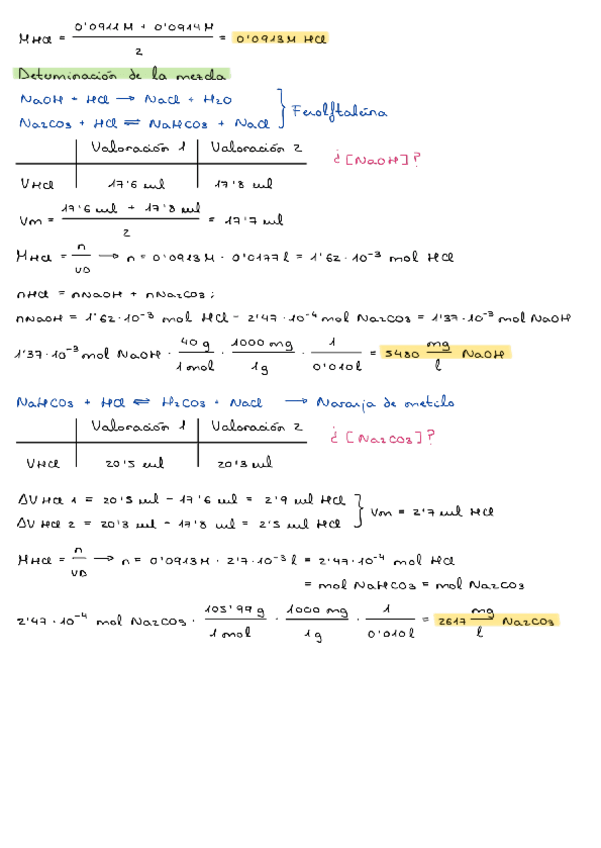 M HCl = (0'0911 M + 0'0914 M) / 2 = 0'0913 M HCl
Determinación de la mezcla
NaOH + HCl → NaCl + H2O
Na2CO3 + HCl ⇌ NaHCO3 + NaCl } Fenolftaleína
Valoración 1 | Valoración 2
¿[NaOH]?
VHCl | 17'6 ml | 17'8 ml
Vm = (17'6 ml + 17'8 ml) / 2 = 17'7 ml
MHCl = n / VD → n = 0'0913 M · 0'0177 l = 1'62 · 10⁻³ mol HCl
nHCl = nNaOH + nNa2CO3;
nNaOH = 1'62·10⁻³ mol HCl - 2'47·10⁻⁴ mol Na2CO3 = 1'37·10⁻³ mol NaOH
1'37·10⁻³ mol NaOH · 40 g / 1 mol · 1000 mg / 1 g · 1 / 0'010 l = 5480 mg / l NaOH
NaHCO3 + HCl ⇌ H2CO3 + NaCl → Naranja de metilo
Valoración 1 | Valoración 2
¿[Na2CO3]?
VHCl | 20'5 ml | 20'3 ml
ΔV HCl 1 = 20'5 ml - 17'6 ml = 2'9 ml HCl
ΔV HCl 2 = 20'3 ml - 17'8 ml = 2'5 ml HCl } Vm = 2'7 ml HCl
MHCl = n / VD → n = 0'0913 M · 2'7·10⁻³ l = 2'47·10⁻⁴ mol HCl
= mol NaHCO3 = mol Na2CO3
2'47·10⁻⁴ mol Na2CO3 · 105'99 g / 1 mol · 1000 mg / 1 g · 1 / 0'010 l = 2617 mg / l Na2CO3